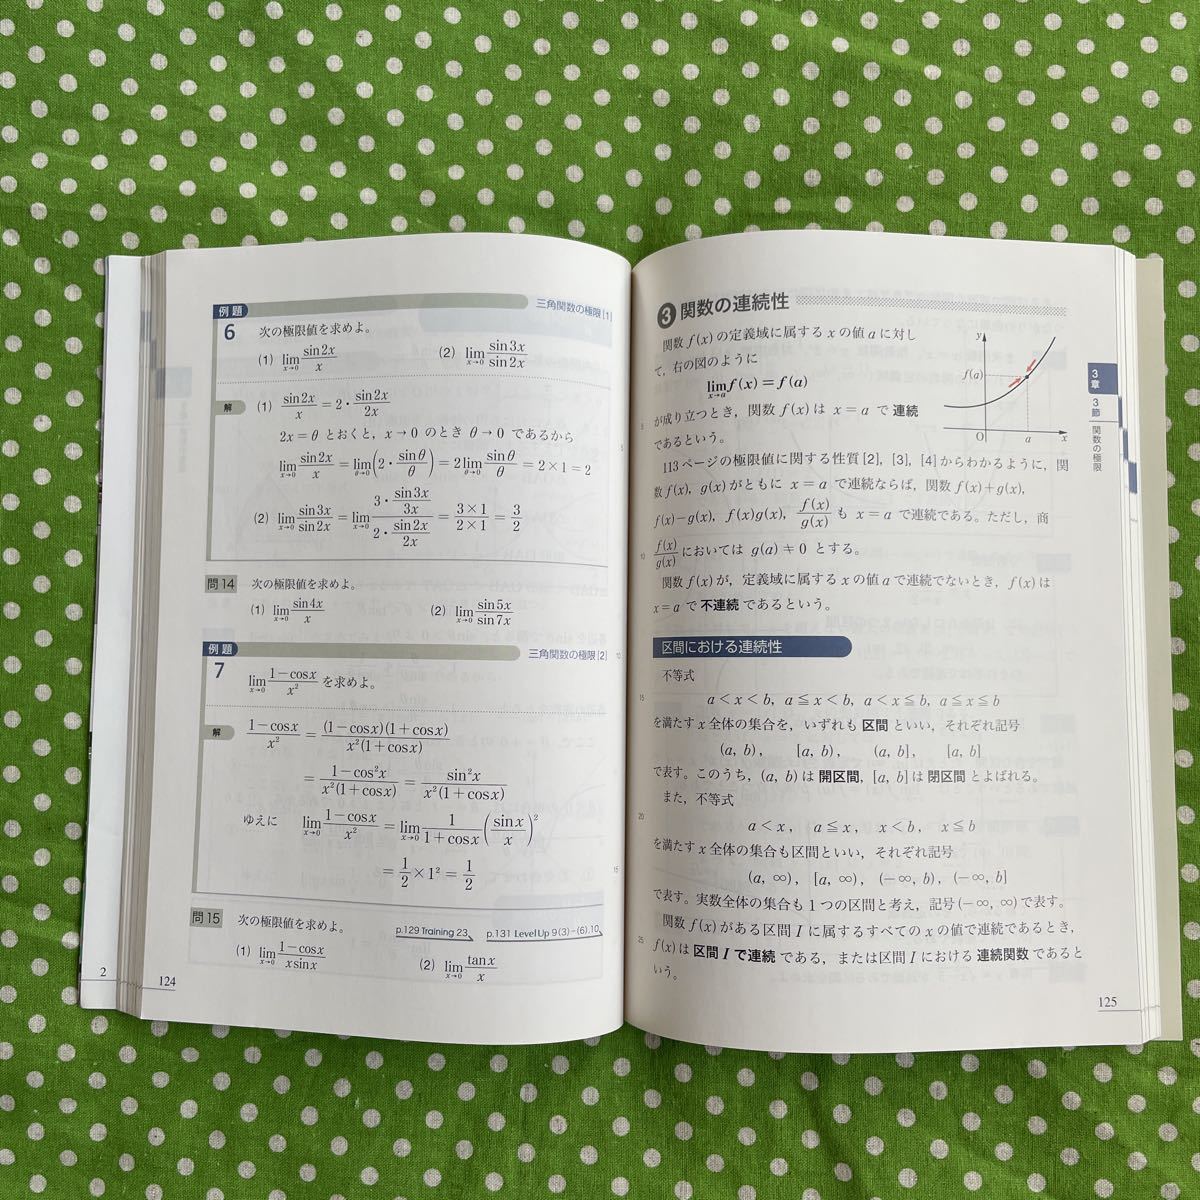 例題
三角関数の極限[1]
6 次の極限値を求めよ。
(1) lim x→0 sin2x/x (2) lim x→0 sin3x/sin2x
解 (1) sin2x/x = 2・sin2x/2x
2x=θ とおくと，x→0 のとき θ→0 であるから
lim x→0 sin2x/x = lim θ→0 (2・sinθ/θ) = 2 lim θ→0 sinθ/θ = 2×1 = 2
(2) lim x→0 sin3x/sin2x = lim x→0 (3・sin3x/3x)/(2・sin2x/2x) = (3×1)/(2×1) = 3/2
問14 次の極限値を求めよ。
(1) lim x→0 sin4x/x (2) lim x→0 sin5x/sin7x
例題
三角関数の極限[2]
7 lim x→0 (1−cosx)/x² を求めよ。
解 (1−cosx)/x² = (1−cosx)(1+cosx)/x²(1+cosx)
= (1−cos²x)/x²(1+cosx) = sin²x/x²(1+cosx)
ゆえに lim x→0 (1−cosx)/x² = lim x→0 1/(1+cosx) (sinx/x)²
= 1/2×1² = 1/2
問15 次の極限値を求めよ。
p.129 Training 23 p.131 Level Up 9(3)-(6),10
(1) lim x→0 (1−cosx)/xsinx (2) lim x→0 tanx/x
2
124
5
10
15
3 関数の連続性
関数 f(x) の定義域に属する x の値 a に対し
て，右の図のように
lim x→a f(x)=f(a)
が成り立つとき，関数 f(x) は x=a で 連続
であるという。
y
f(a)
O a x
113ページの極限値に関する性質[2]，[3]，[4]からわかるように，関
数 f(x)，g(x) がともに x=a で連続ならば，関数 f(x)+g(x)，
f(x)−g(x)，f(x)g(x)，f(x)/g(x) も x=a で連続である。ただし，商
f(x)/g(x) においては g(a)≠0 とする。
関数 f(x) が，定義域に属する x の値 a で連続でないとき，f(x) は
x=a で 不連続 であるという。
区間における連続性
不等式
a<x<b，a≦x<b，a<x≦b，a≦x≦b
を満たす x 全体の集合を，いずれも 区間 といい，それぞれ記号
(a, b)， [a, b)， (a, b]， [a, b]
で表す。このうち，(a, b) は 開区間，[a, b] は 閉区間 とよばれる。
また，不等式
a<x， a≦x， x<b， x≦b
を満たす x 全体の集合も区間といい，それぞれ記号
(a, ∞)， [a, ∞)， (−∞, b)， (−∞, b]
で表す。実数全体の集合も 1 つの区間と考え，記号 (−∞, ∞) で表す。
関数 f(x) がある区間 I に属するすべての x の値で連続であるとき，
f(x) は 区間 I で連続 である，または区間 I における 連続関数 であると
いう。
5
10
15
20
25
3章
3節
関数の極限
125